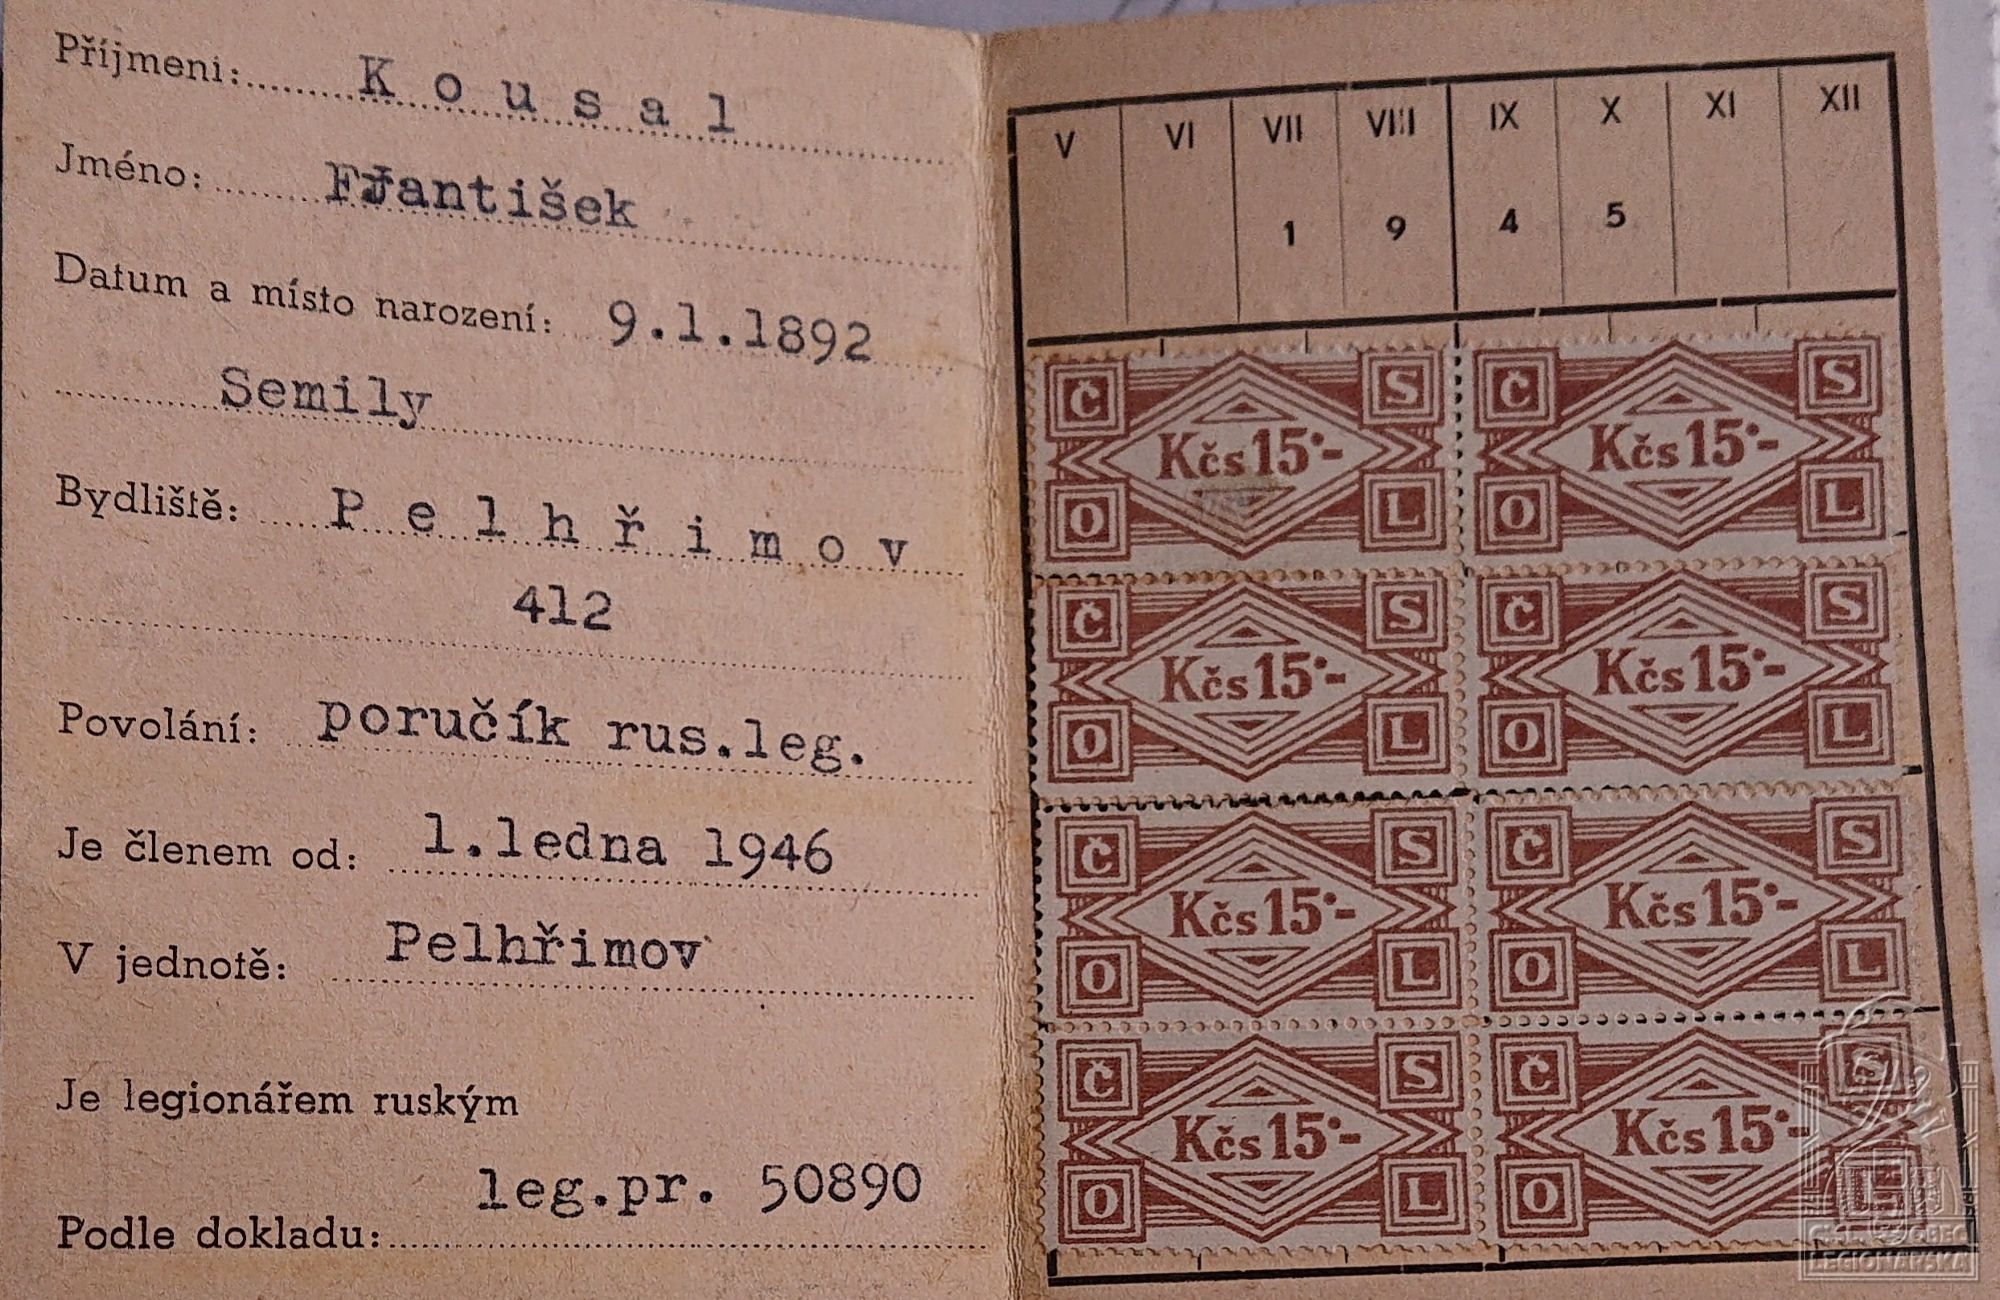 Příjmeni: Kousal
Jméno: František
Datum a místo narození: 9.1.1892
Semily
Bydliště: Pelhřimov
412
Povolání: poručík rus.leg.
Je členem od: 1.ledna 1946
V jednotě: Pelhřimov
Je legionářem ruským
leg.pr. 50890
Podle dokladu:
V VI VII VIII IX X XI XII
1 9 4 5
Č S Č S
Kčs 15·- Kčs 15·-
O L O L
Č S Č S
Kčs 15·- Kčs 15·-
O L O L
Č S Č S
Kčs 15·- Kčs 15·-
O L O L
Č S Č S
Kčs 15·- Kčs 15·-
O L O
ČSL. OBEC
LEGIONÁŘSKÁ